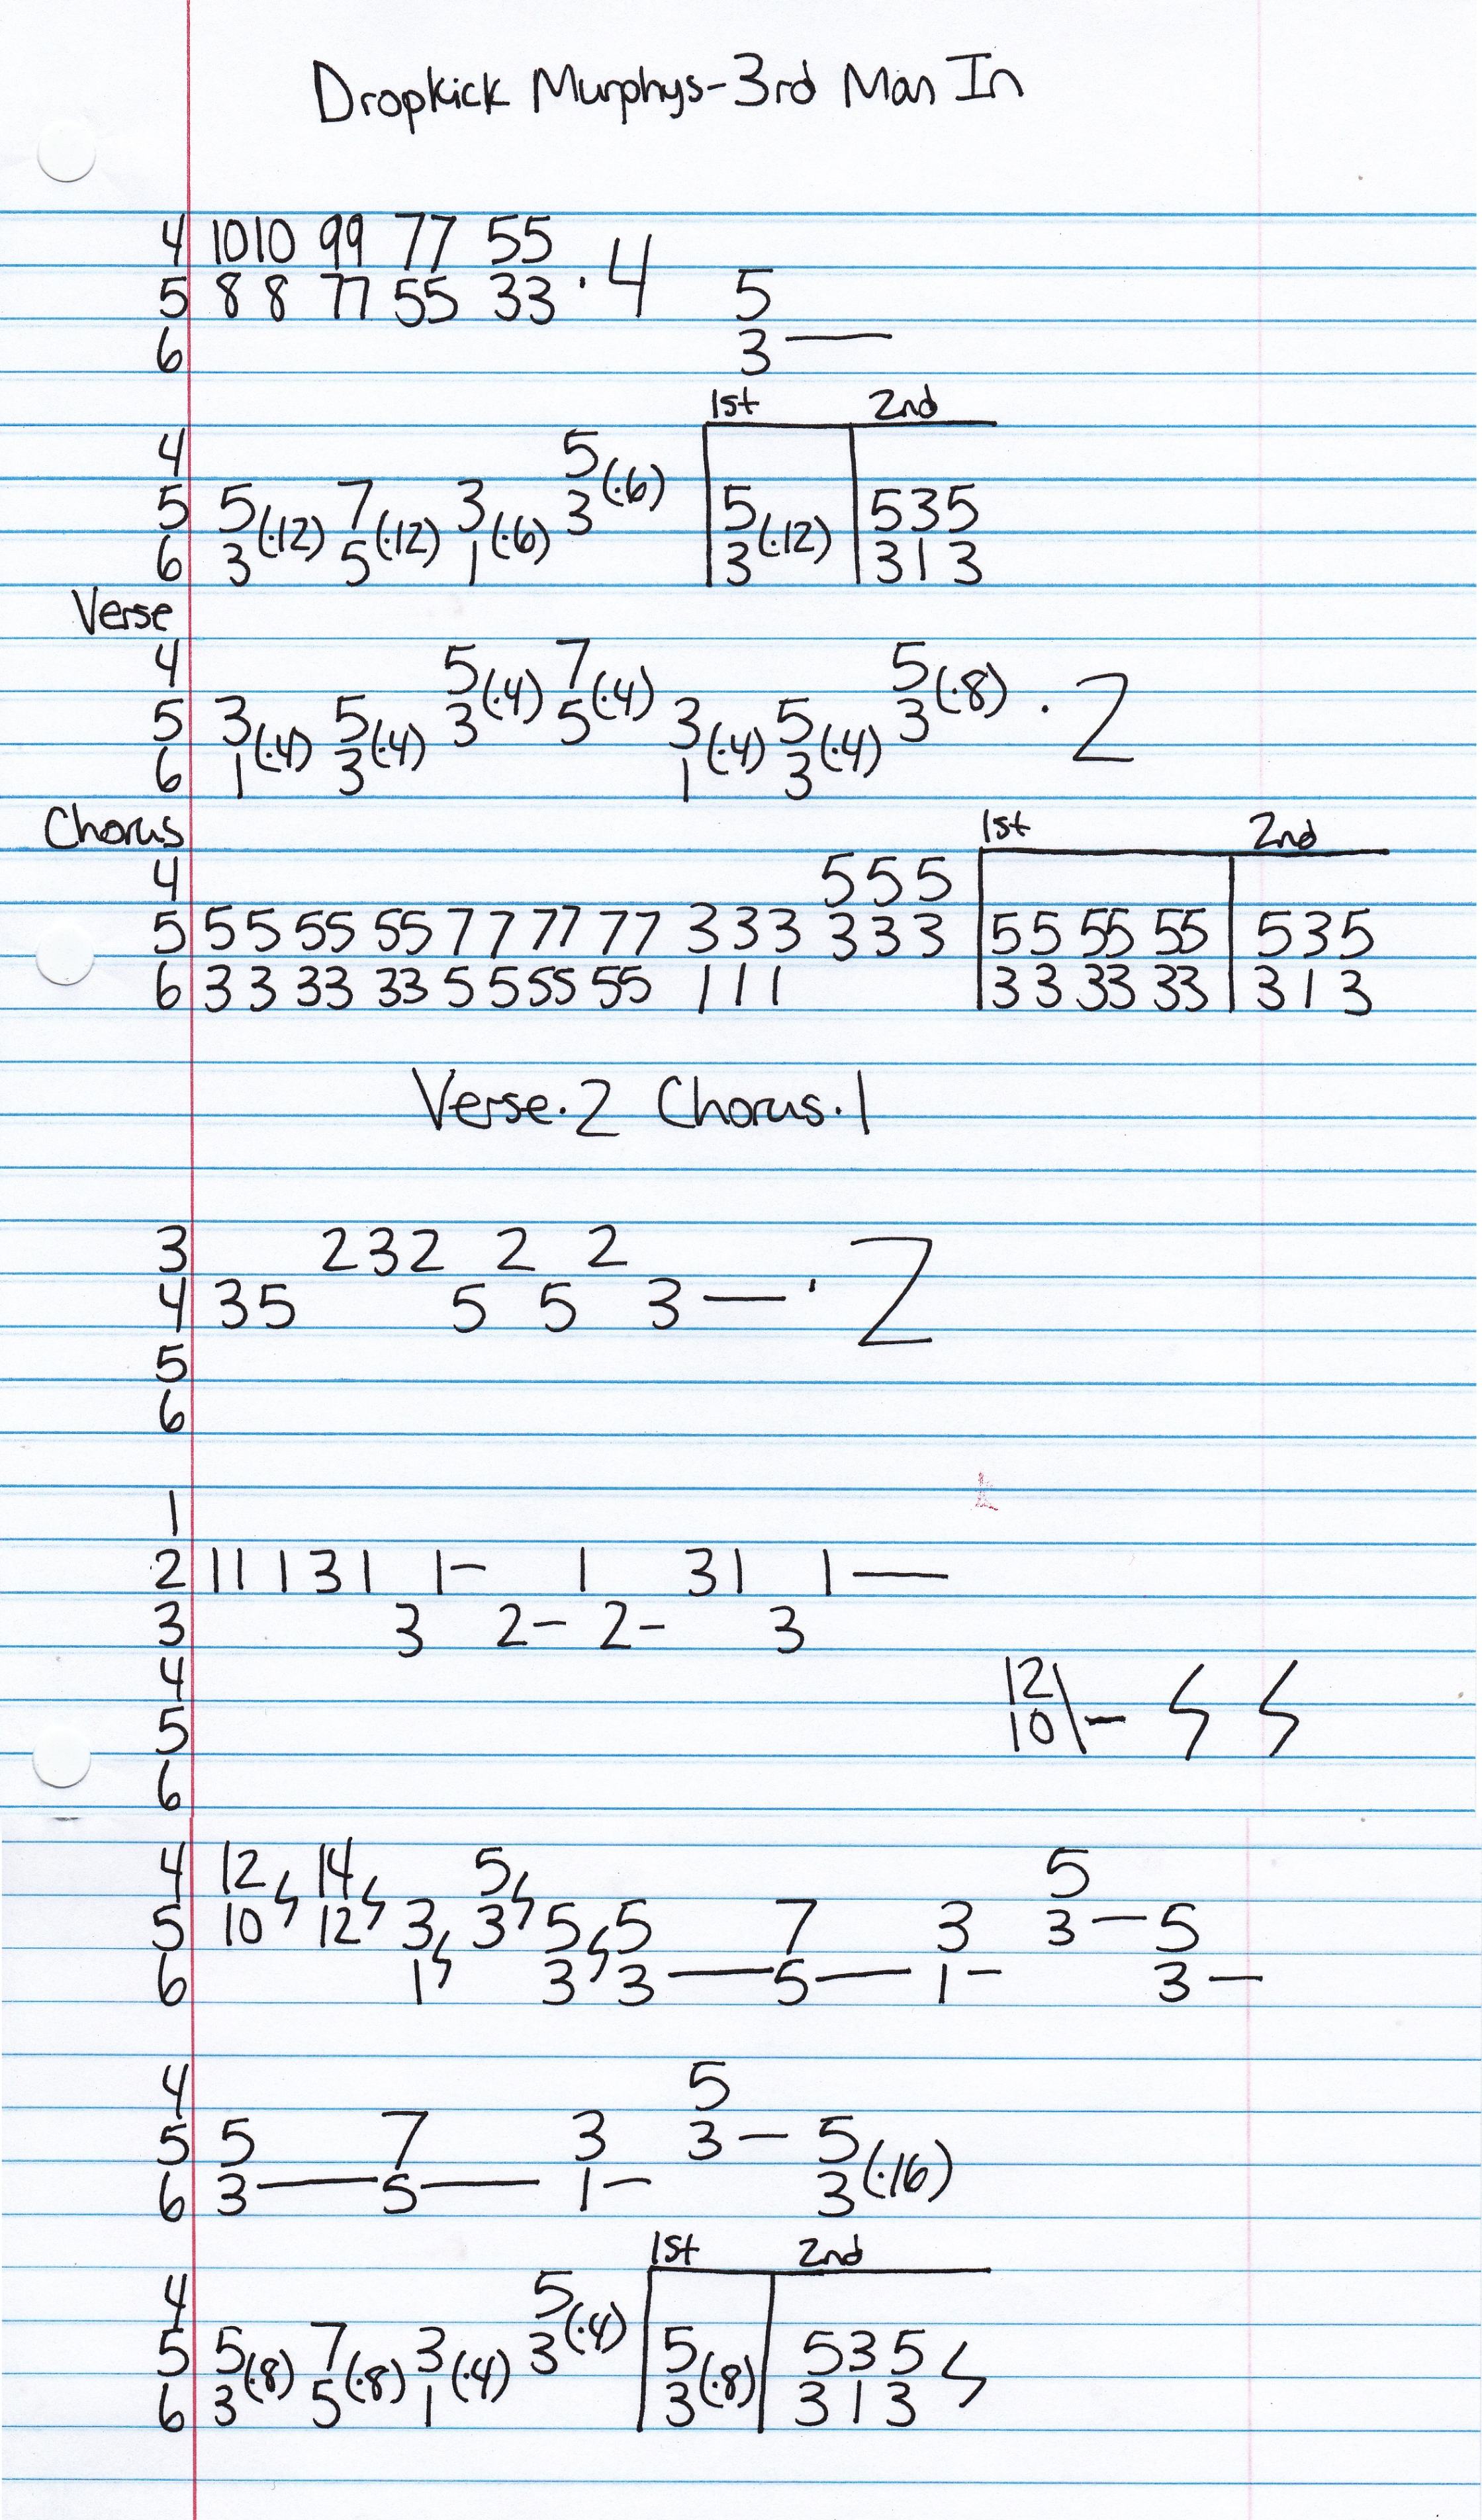 Dropkick Murphys-3rd Man In
4 1010 99 77 55
5 8 8 77 55 33 ·4 5
6 3—
1st 2nd
4 5(·6)
5 5(·12) 7(·12) 3(·6) 3 5(·12) 535
6 3 5 1 3 313
Verse
4 5(·4) 7(·4) 5(·8)
5 3(·4) 5(·4) 3 5 3(·4) 5(·4) 3 ·2
6 1 3 1 3
Chorus 1st 2nd
4 555
5 55 55 55 77 77 77 333 333 55 55 55 535
6 33 33 33 55 55 55 111 33 33 33 313
Verse·2 Chorus·1
3 232 2 2
4 35 5 5 3— ·2
5
6
1
2 11 131 1- 1 31 1—
3 3 2- 2- 3
4 12\
5 10\-
6
4 12 14 5 5
5 10 12 3 3 5 5 7 3 3—5
6 1 3 3—5— 1- 3—
4 5
5 5 7 3 3— 5(·16)
6 3—5— 1- 3
1st 2nd
4 5(·4)
5 5(·8) 7(·8) 3(·4) 3 5(·8) 535
6 3 5 1 3 313